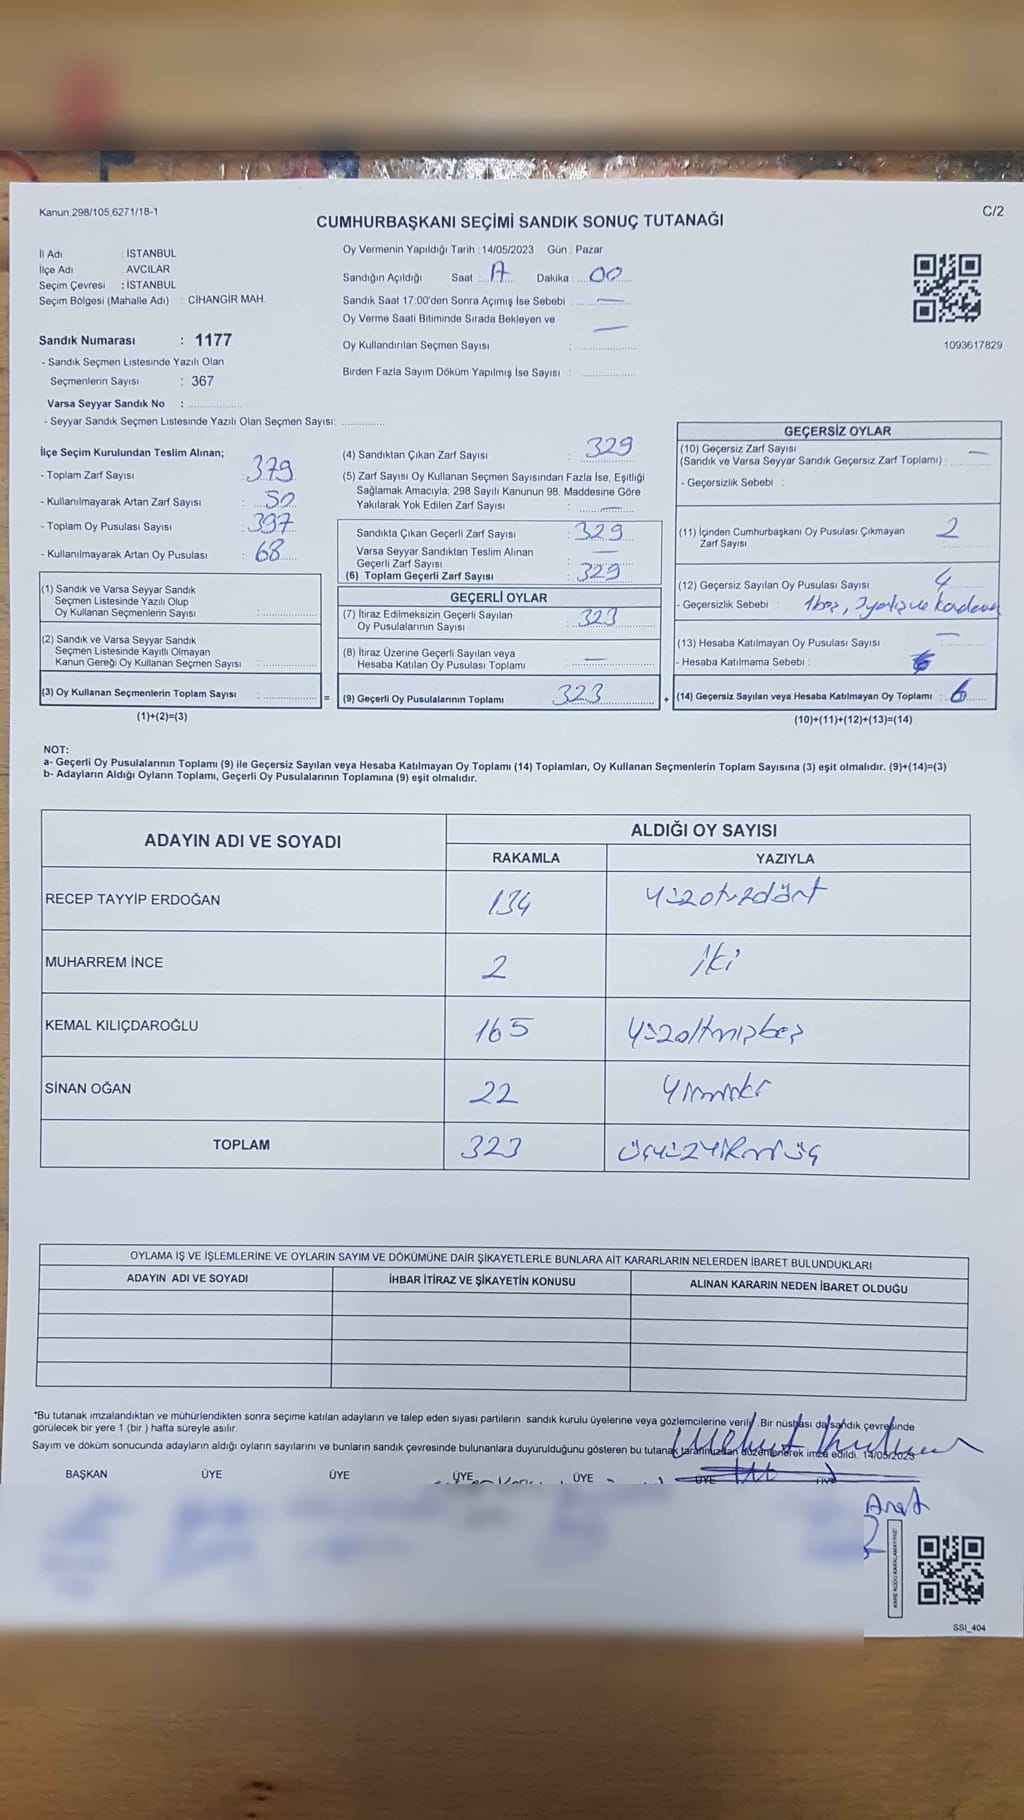 Kanun;298/105,6271/18-1
C/2
CUMHURBAŞKANI SEÇİMİ SANDIK SONUÇ TUTANAĞI
İl Adı : İSTANBUL
İlçe Adı : AVCILAR
Seçim Çevresi : İSTANBUL
Seçim Bölgesi (Mahalle Adı) : CİHANGİR MAH.
Oy Vermenin Yapıldığı Tarih : 14/05/2023 Gün : Pazar
Sandığın Açıldığı Saat : Dakika : 00
Sandık Saat 17:00'den Sonra Açımış İse Sebebi : —
Oy Verme Saati Bitiminde Sırada Bekleyen ve
Oy Kullandırılan Seçmen Sayısı : —
Birden Fazla Sayım Döküm Yapılmış İse Sayısı :
1093617829
Sandık Numarası : 1177
- Sandık Seçmen Listesinde Yazılı Olan
Seçmenlerin Sayısı : 367
Varsa Seyyar Sandık No :
- Seyyar Sandık Seçmen Listesinde Yazılı Olan Seçmen Sayısı:
İlçe Seçim Kurulundan Teslim Alınan;
- Toplam Zarf Sayısı : 379
- Kullanılmayarak Artan Zarf Sayısı : 50
- Toplam Oy Pusulası Sayısı : 397
- Kullanılmayarak Artan Oy Pusulası : 68
(1) Sandık ve Varsa Seyyar Sandık
Seçmen Listesinde Yazılı Olup
Oy Kullanan Seçmenlerin Sayısı :
(2) Sandık ve Varsa Seyyar Sandık
Seçmen Listesinde Kayıtlı Olmayan
Kanun Gereği Oy Kullanan Seçmen Sayısı :
(3) Oy Kullanan Seçmenlerin Toplam Sayısı :
(1)+(2)=(3)
(4) Sandıktan Çıkan Zarf Sayısı : 329
(5) Zarf Sayısı Oy Kullanan Seçmen Sayısından Fazla İse, Eşitliği
Sağlamak Amacıyla; 298 Sayılı Kanunun 98. Maddesine Göre
Yakılarak Yok Edilen Zarf Sayısı : —
Sandıkta Çıkan Geçerli Zarf Sayısı : 329
Varsa Seyyar Sandıktan Teslim Alınan
Geçerli Zarf Sayısı : —
(6) Toplam Geçerli Zarf Sayısı : 329
GEÇERLİ OYLAR
(7) İtiraz Edilmeksizin Geçerli Sayılan
Oy Pusulalarının Sayısı : 323
(8) İtiraz Üzerine Geçerli Sayılan veya
Hesaba Katılan Oy Pusulası Toplamı : —
= (9) Geçerli Oy Pusulalarının Toplamı 323
GEÇERSİZ OYLAR
(10) Geçersiz Zarf Sayısı
(Sandık ve Varsa Seyyar Sandık Geçersiz Zarf Toplamı) : —
- Geçersizlik Sebebi :
(11) İçinden Cumhurbaşkanı Oy Pusulası Çıkmayan
Zarf Sayısı : 2
(12) Geçersiz Sayılan Oy Pusulası Sayısı : 4
- Geçersizlik Sebebi : 1 boş,
(13) Hesaba Katılmayan Oy Pusulası Sayısı : —
- Hesaba Katılmama Sebebi :
+ (14) Geçersiz Sayılan veya Hesaba Katılmayan Oy Toplamı : 6
(10)+(11)+(12)+(13)=(14)
NOT:
a- Geçerli Oy Pusulalarının Toplamı (9) ile Geçersiz Sayılan veya Hesaba Katılmayan Oy Toplamı (14) Toplamları, Oy Kullanan Seçmenlerin Toplam Sayısına (3) eşit olmalıdır. (9)+(14)=(3)
b- Adayların Aldığı Oyların Toplamı, Geçerli Oy Pusulalarının Toplamına (9) eşit olmalıdır.
ADAYIN ADI VE SOYADI ALDIĞI OY SAYISI
RAKAMLA YAZIYLA
RECEP TAYYİP ERDOĞAN 134 Yüzotuzdört
MUHARREM İNCE 2 iki
KEMAL KILIÇDAROĞLU 165 Yüzaltmışbeş
SİNAN OĞAN 22 Yirmiki
TOPLAM 323 Üçyüzyirmiüç
OYLAMA İŞ VE İŞLEMLERİNE VE OYLARIN SAYIM VE DÖKÜMÜNE DAİR ŞİKAYETLERLE BUNLARA AİT KARARLARIN NELERDEN İBARET BULUNDUKLARI
ADAYIN ADI VE SOYADI İHBAR İTİRAZ VE ŞİKAYETİN KONUSU ALINAN KARARIN NEDEN İBARET OLDUĞU
*Bu tutanak imzalandıktan ve mühürlendikten sonra seçime katılan adayların ve talep eden siyasi partilerin sandık kurulu üyelerine veya gözlemcilerine verilir. Bir nüshası da sandık çevresinde
görülecek bir yere 1 (bir) hafta süreyle asılır.
Sayım ve döküm sonucunda adayların aldığı oyların sayılarını ve bunların sandık çevresinde bulunanlara duyurulduğunu gösteren bu tutanak tarafımızdan düzenlenerek imza edildi. 14/05/2023
BAŞKAN ÜYE ÜYE ÜYE ÜYE ÜYE ÜYE
SSI_404